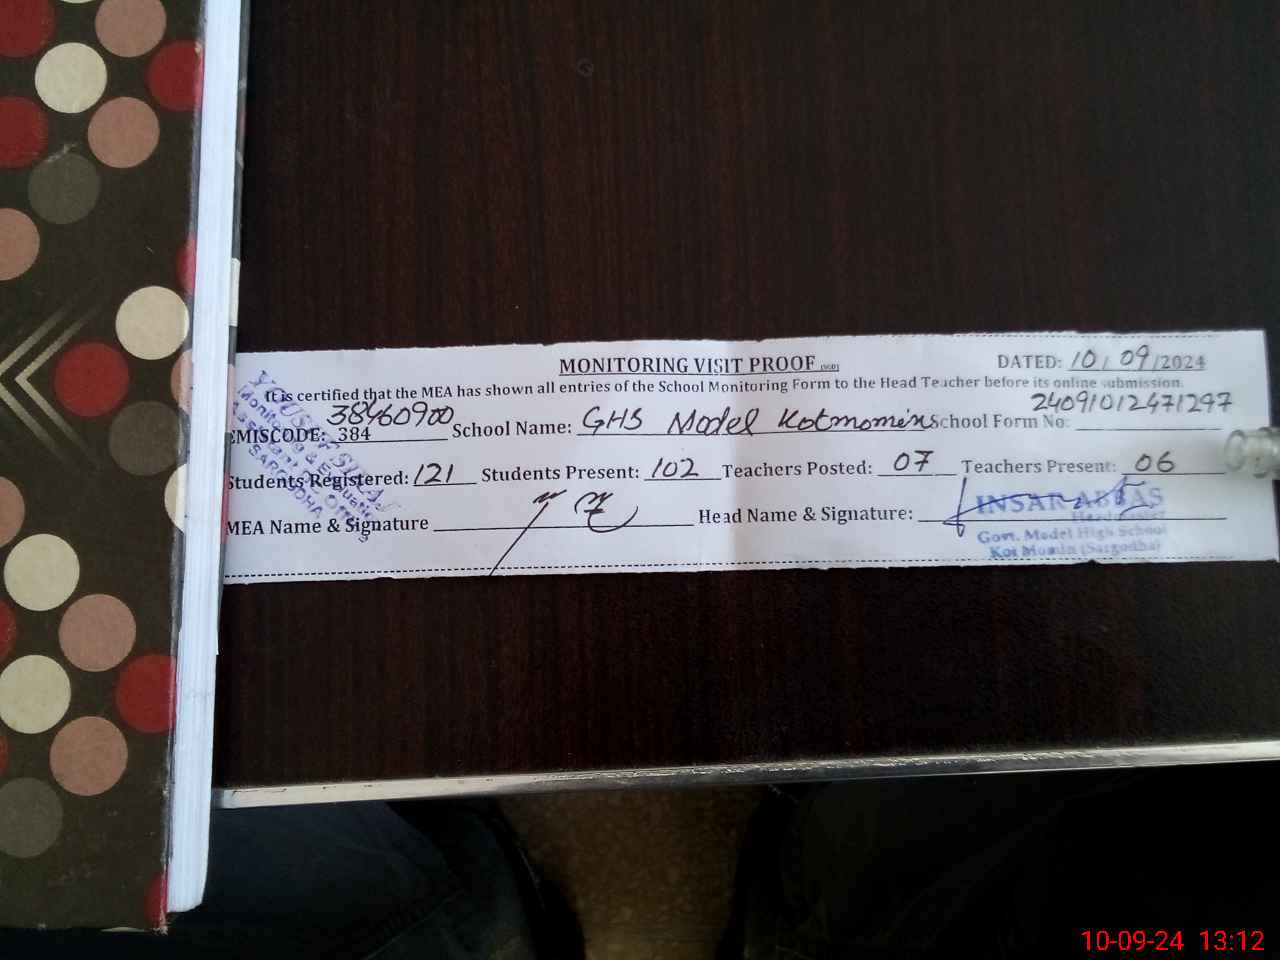 MONITORING VISIT PROOF
DATED: 10/09/2024
It is certified that the MEA has shown all entries of the School Monitoring Form to the Head Teacher before its online submission.
38460900 24091012471297
EMISCODE: 384 School Name: GHS Model Kotmomin School Form No:
Students Registered: 121 Students Present: 102 Teachers Posted: 07 Teachers Present: 06
MEA Name & Signature Head Name & Signature:
INSAR ABBAS
Headmaster
Govt. Model High School
Kot Momin (Sargodha)
Monitoring & Evaluation
Assistant
SARGODHA
10-09-24 13:12